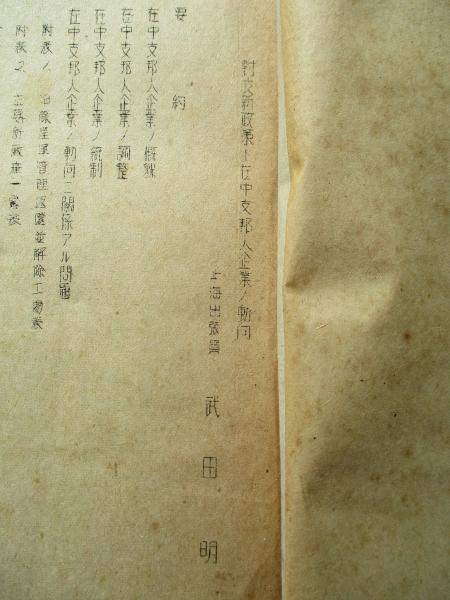 対支新政策ト在中支邦人企業ノ動向
上海出張員 武田明
要約
在中支邦人企業ノ概貌
在中支邦人企業ノ調整
在中支邦人企業ノ統制
在中支邦人企業ノ動向ニ関係アル問題
附表1. 軍管理返還並解除工場表
附表2. 主要新敵産一覧表